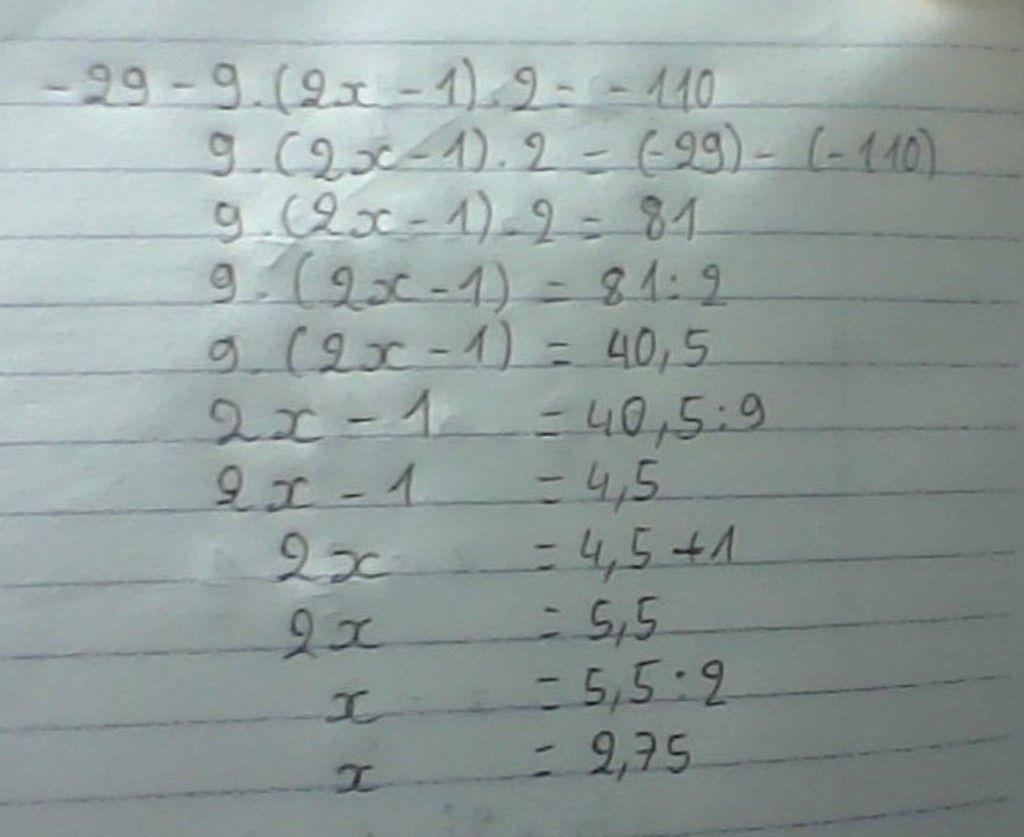 -29 - 9.(2x - 1).2 = -110
9.(2x - 1).2 = (-29) - (-110)
9.(2x - 1).2 = 81
9.(2x - 1) = 81:2
9.(2x - 1) = 40,5
2x - 1 = 40,5:9
2x - 1 = 4,5
2x = 4,5 + 1
2x = 5,5
x = 5,5:2
x = 2,75